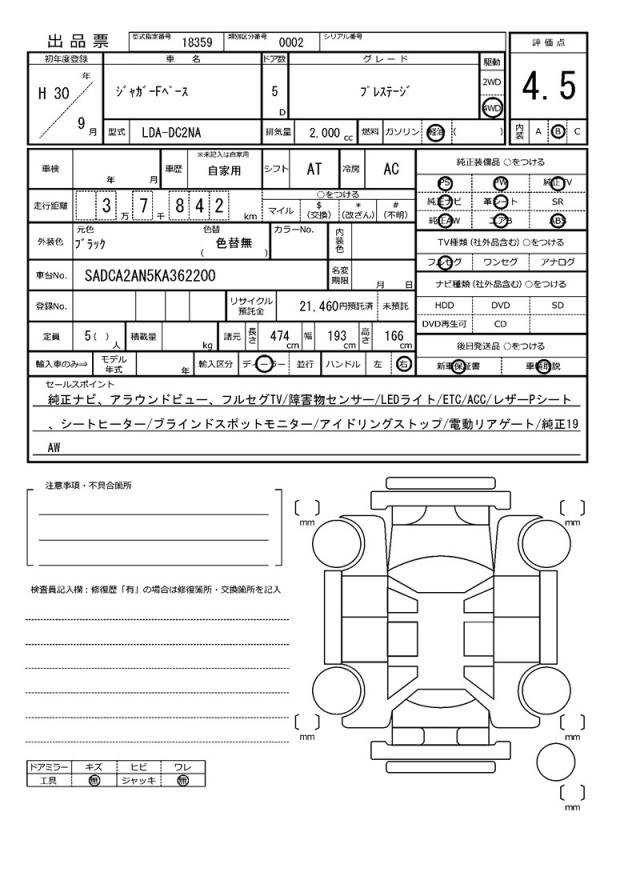 出品票 型式指定番号 18359 類別区分番号 0002 シリアル番号
評価点
4.5
内装 A B C
初年度登録 車名 ドア数 グレード 駆動
H 30 年 9 月 ジャガーFペース 5 D プレステージ 2WD 4WD
型式 LDA-DC2NA 排気量 2,000 cc 燃料 ガソリン 軽油 ( )
車検 年 月 車歴 ※未記入は自家用 自家用 シフト AT 冷房 AC
走行距離 3 万 7 千 8 4 2 km
○をつける
マイル $ (交換) * (改ざん) # (不明)
外装色 元色 ブラック 色替 色替無 ( ) カラーNo. 内装色
車台No. SADCA2AN5KA362200 名変期限 月 日
登録No. リサイクル預託金 21,460円預託済 未預託
定員 5( ) 人 積載量 kg 諸元 長さ 474 cm 幅 193 cm 高さ 166 cm
輸入車のみ⇒ モデル年式 年 輸入区分 ディーラー 並行 ハンドル 左 右
純正装備品 ○をつける
PS PW 純正TV
純正ナビ 革シート SR
純正AW エアB ABS
TV種類 (社外品含む) ○をつける
フルセグ ワンセグ アナログ
ナビ種類 (社外品含む) ○をつける
HDD DVD SD
DVD再生可 CD
後日発送品 ○をつける
新車保証書 車輌取説
セールスポイント
純正ナビ、アラウンドビュー、フルセグTV/障害物センサー/LEDライト/ETC/ACC/レザーPシート
、シートヒーター/ブラインドスポットモニター/アイドリングストップ/電動リアゲート/純正19
AW
注意事項・不具合箇所
検査員記入欄：修復歴「有」の場合は修復箇所・交換箇所を記入
ドアミラー キズ ヒビ ワレ
工具 無 ジャッキ 無
mm
mm
mm
mm
mm